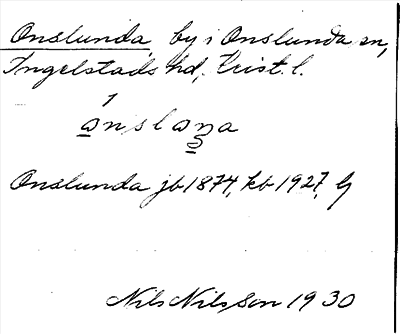 Onslunda, by i Onslunda sn,
Ingelstads hd, Krist. l.
Onslunda jb 1874, kb 1927, G
Nils Nilsson 1930